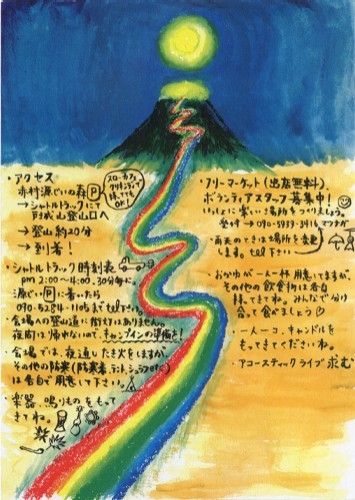 ・アクセス
赤村源じいの森Ⓟ
→シャトルトラックにて
戸城山登山口へ
→登山約20分
→到着!
スローカフェ
持ってても
OK!
・シャトルトラック時刻表
pm 2:00〜4:00. 30分毎に。
源じいⓅに着いたら
090-5284-1105までtel下さい。
・会場の登山道に街灯はありません。
夜間は帰れないので、キャンプインの準備を!
・会場では、夜通したき火をしますが、
その他の防寒(防寒着、テント、シュラフetc)
は各自で用意して下さい。
・楽器、鳴りものをもって
きてね。
・フリーマーケット(出店無料)、
ボランティアスタッフ募集中!
いっしょに楽しい場所をつくりましょう。
受付→090-5939-3414 マツナガ
・雨天のときは場所を変更
します。tel下さい
・おかゆが一人一杯用意してますが、
その他の飲食物は各自
持ってきてね。みんなで分け
合って食べましょう♡
・一人一コ、キャンドルを
もってきてくださいね。
・アコースティックライブ求む